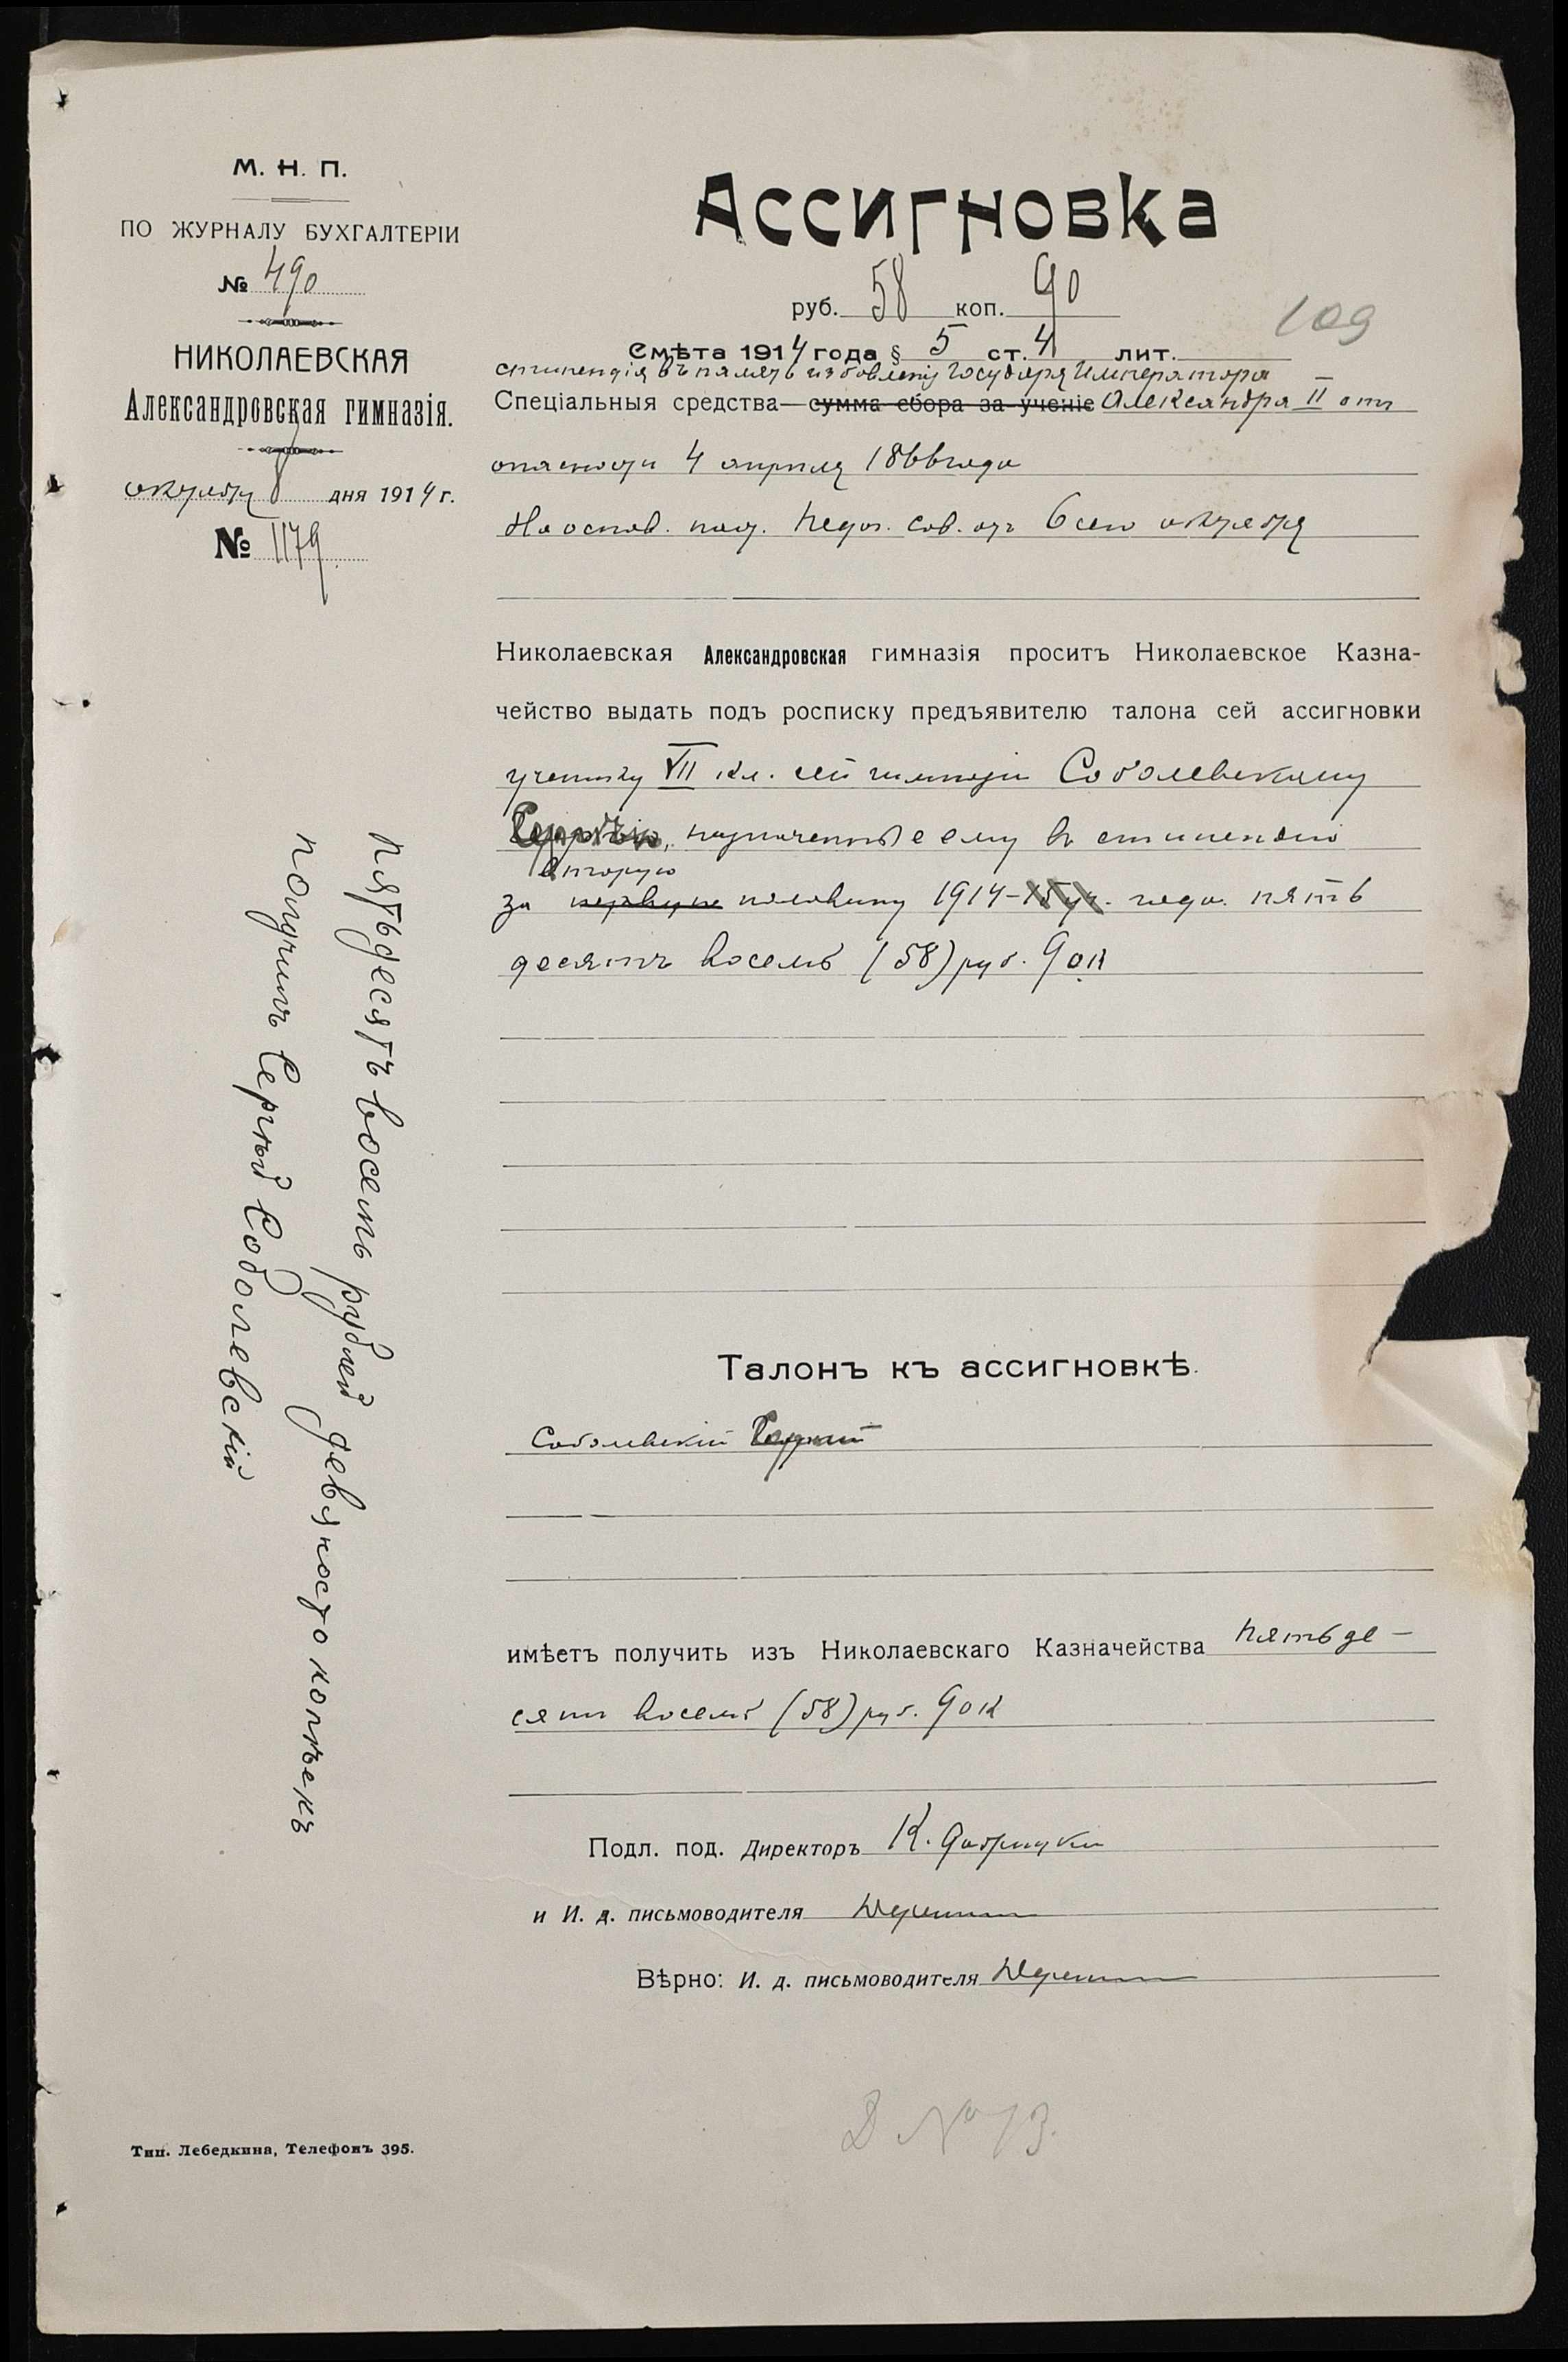 М. Н. П.
ПО ЖУРНАЛУ БУХГАЛТЕРІИ
№ 490
НИКОЛАЕВСКАЯ
Александровская гимназія.
октября 8 дня 1914 г.
№ 1179
Ассигновка
руб. 58 коп. 90
109
Смѣта 1914 года § 5 ст. 4 лит.
стипендія въ память избавленія Государя Императора
Спеціальныя средства— сумма сбора за ученіе Александра II отъ
опасности 4 апрѣля 1866 года
На основ. пост. Педаг. Сов. отъ 6 сего октября
Николаевская Александровская гимназія проситъ Николаевское Казна-
чейство выдать подъ росписку предъявителю талона сей ассигновки
ученику VII кл. сей гимназіи Соболевскому
Сергѣю, назначенные ему въ стипендію
вторую
за первую половину 1914-15 уч. года пять
десятъ восемь (58) руб. 90 к
Пятьдесятъ восемь рублей девяносто копѣекъ
получилъ Сергѣй Соболевскій
Талонъ къ ассигновкѣ.
Соболевскій Сергѣй
имѣетъ получить изъ Николаевскаго Казначейства пятьде-
сятъ восемь (58) руб. 90 к
Подл. под. Директоръ К.
и И. д. письмоводителя
Вѣрно: И. д. письмоводителя
Тип. Лебедкина, Телефонъ 395.